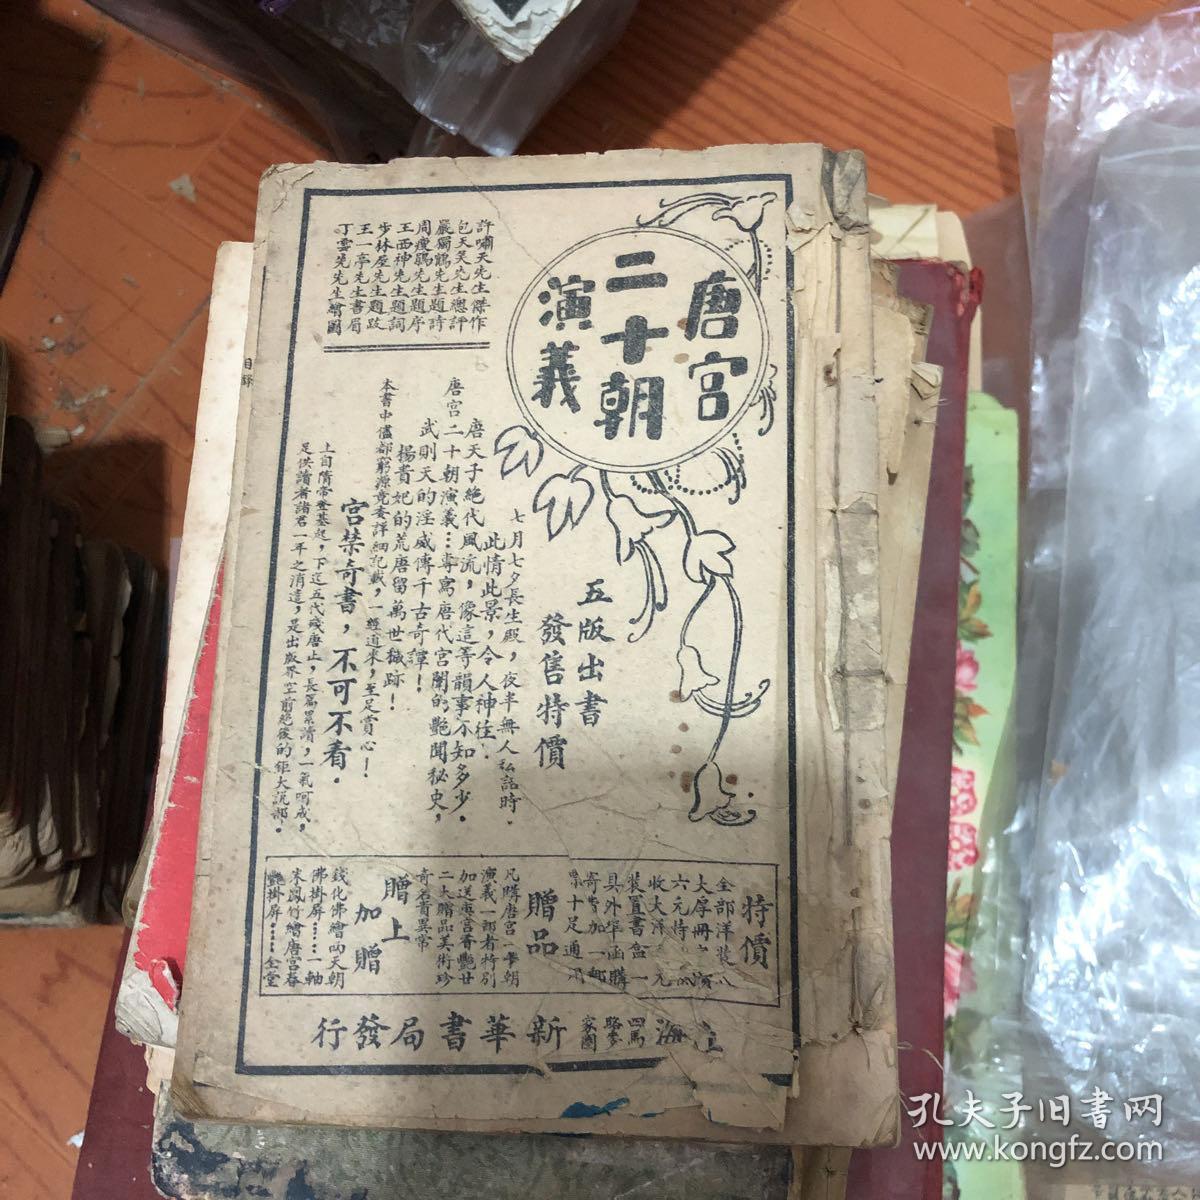 唐宮
二十朝
演義
五版出書
發售特價
許嘯天先生傑作
包天笑先生總評
嚴獨鶴先生題詩
周瘦鵑先生題序
王西神先生題詞
步林屋先生題跋
王一亭先生書眉
丁雲先先生繪圖
七月七夕長生殿，夜半無人私話時．
此情此景，令人神往．
唐天子絕代風流，像這等韻事不知多少．
唐宮二十朝演義…專寫唐代宮闈的艷聞秘史，
武則天的淫威傳千古奇譚！
楊貴妃的荒唐留萬世穢跡！
本書中儘都窮源竟委詳細記載，一經道來，至足賞心！
宮禁奇書，不可不看．
上自隋帝登基起，下迄五代殘唐止，長篇累牘，一氣呵成，
足供讀者諸君一年之消遣，是出版界空前絕後的鉅大說部．
特價
全部洋裝八
大厚冊
六元特
收大洋元
裝置書盒一
具外埠函購
寄費加一郵
票十足通用
贈品
凡購唐宮二十朝
演義一部者特別
加送唐宮香艷廿
二大贈品美術珍
奇名貴異常
贈上
加贈
錢化佛繪南天朝
佛掛屏……一軸
朱鳳竹繪唐宮春
艷掛屏……全堂
上海
四馬
路麥
家圈
新華書局發行
目錄
孔夫子旧书网
www.kongfz.com